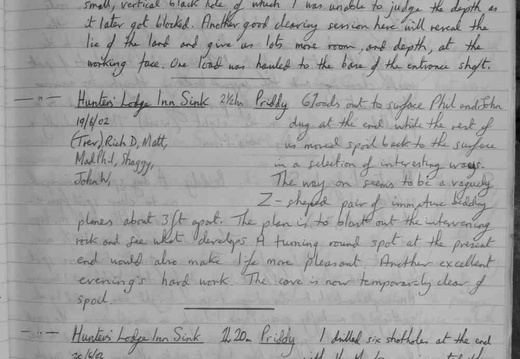 small, vertical black hole of which I was unable to judge the depth as
it later got blocked. Another good clearing session here will reveal the
lie of the land and give us lots more room, and depth, at the
working face. One load was hauled to the base of the entrance shaft.
— " — Hunters' Lodge Inn Sink 2½hrs Priddy 61 loads out to surface Phil and John
19/6/02 dug at the end while the rest of
(Trev) Rich D, Matt, us moved spoil back to the surface
Mad Phil, Shaggy, in a selection of interesting ways.
John W, The way on seems to be a vaguely
Z-shaped pair of immature bedding
planes about 3ft apart. The plan is to blast out the intervening
rock and see what develops. A turning round spot at the present
end would also make life more pleasant. Another excellent
evening's hard work. The cave is now temporarily clear of
spoil.
— " — Hunters' Lodge Inn Sink Priddy I drilled six shotholes at the end
20/6/02 with the